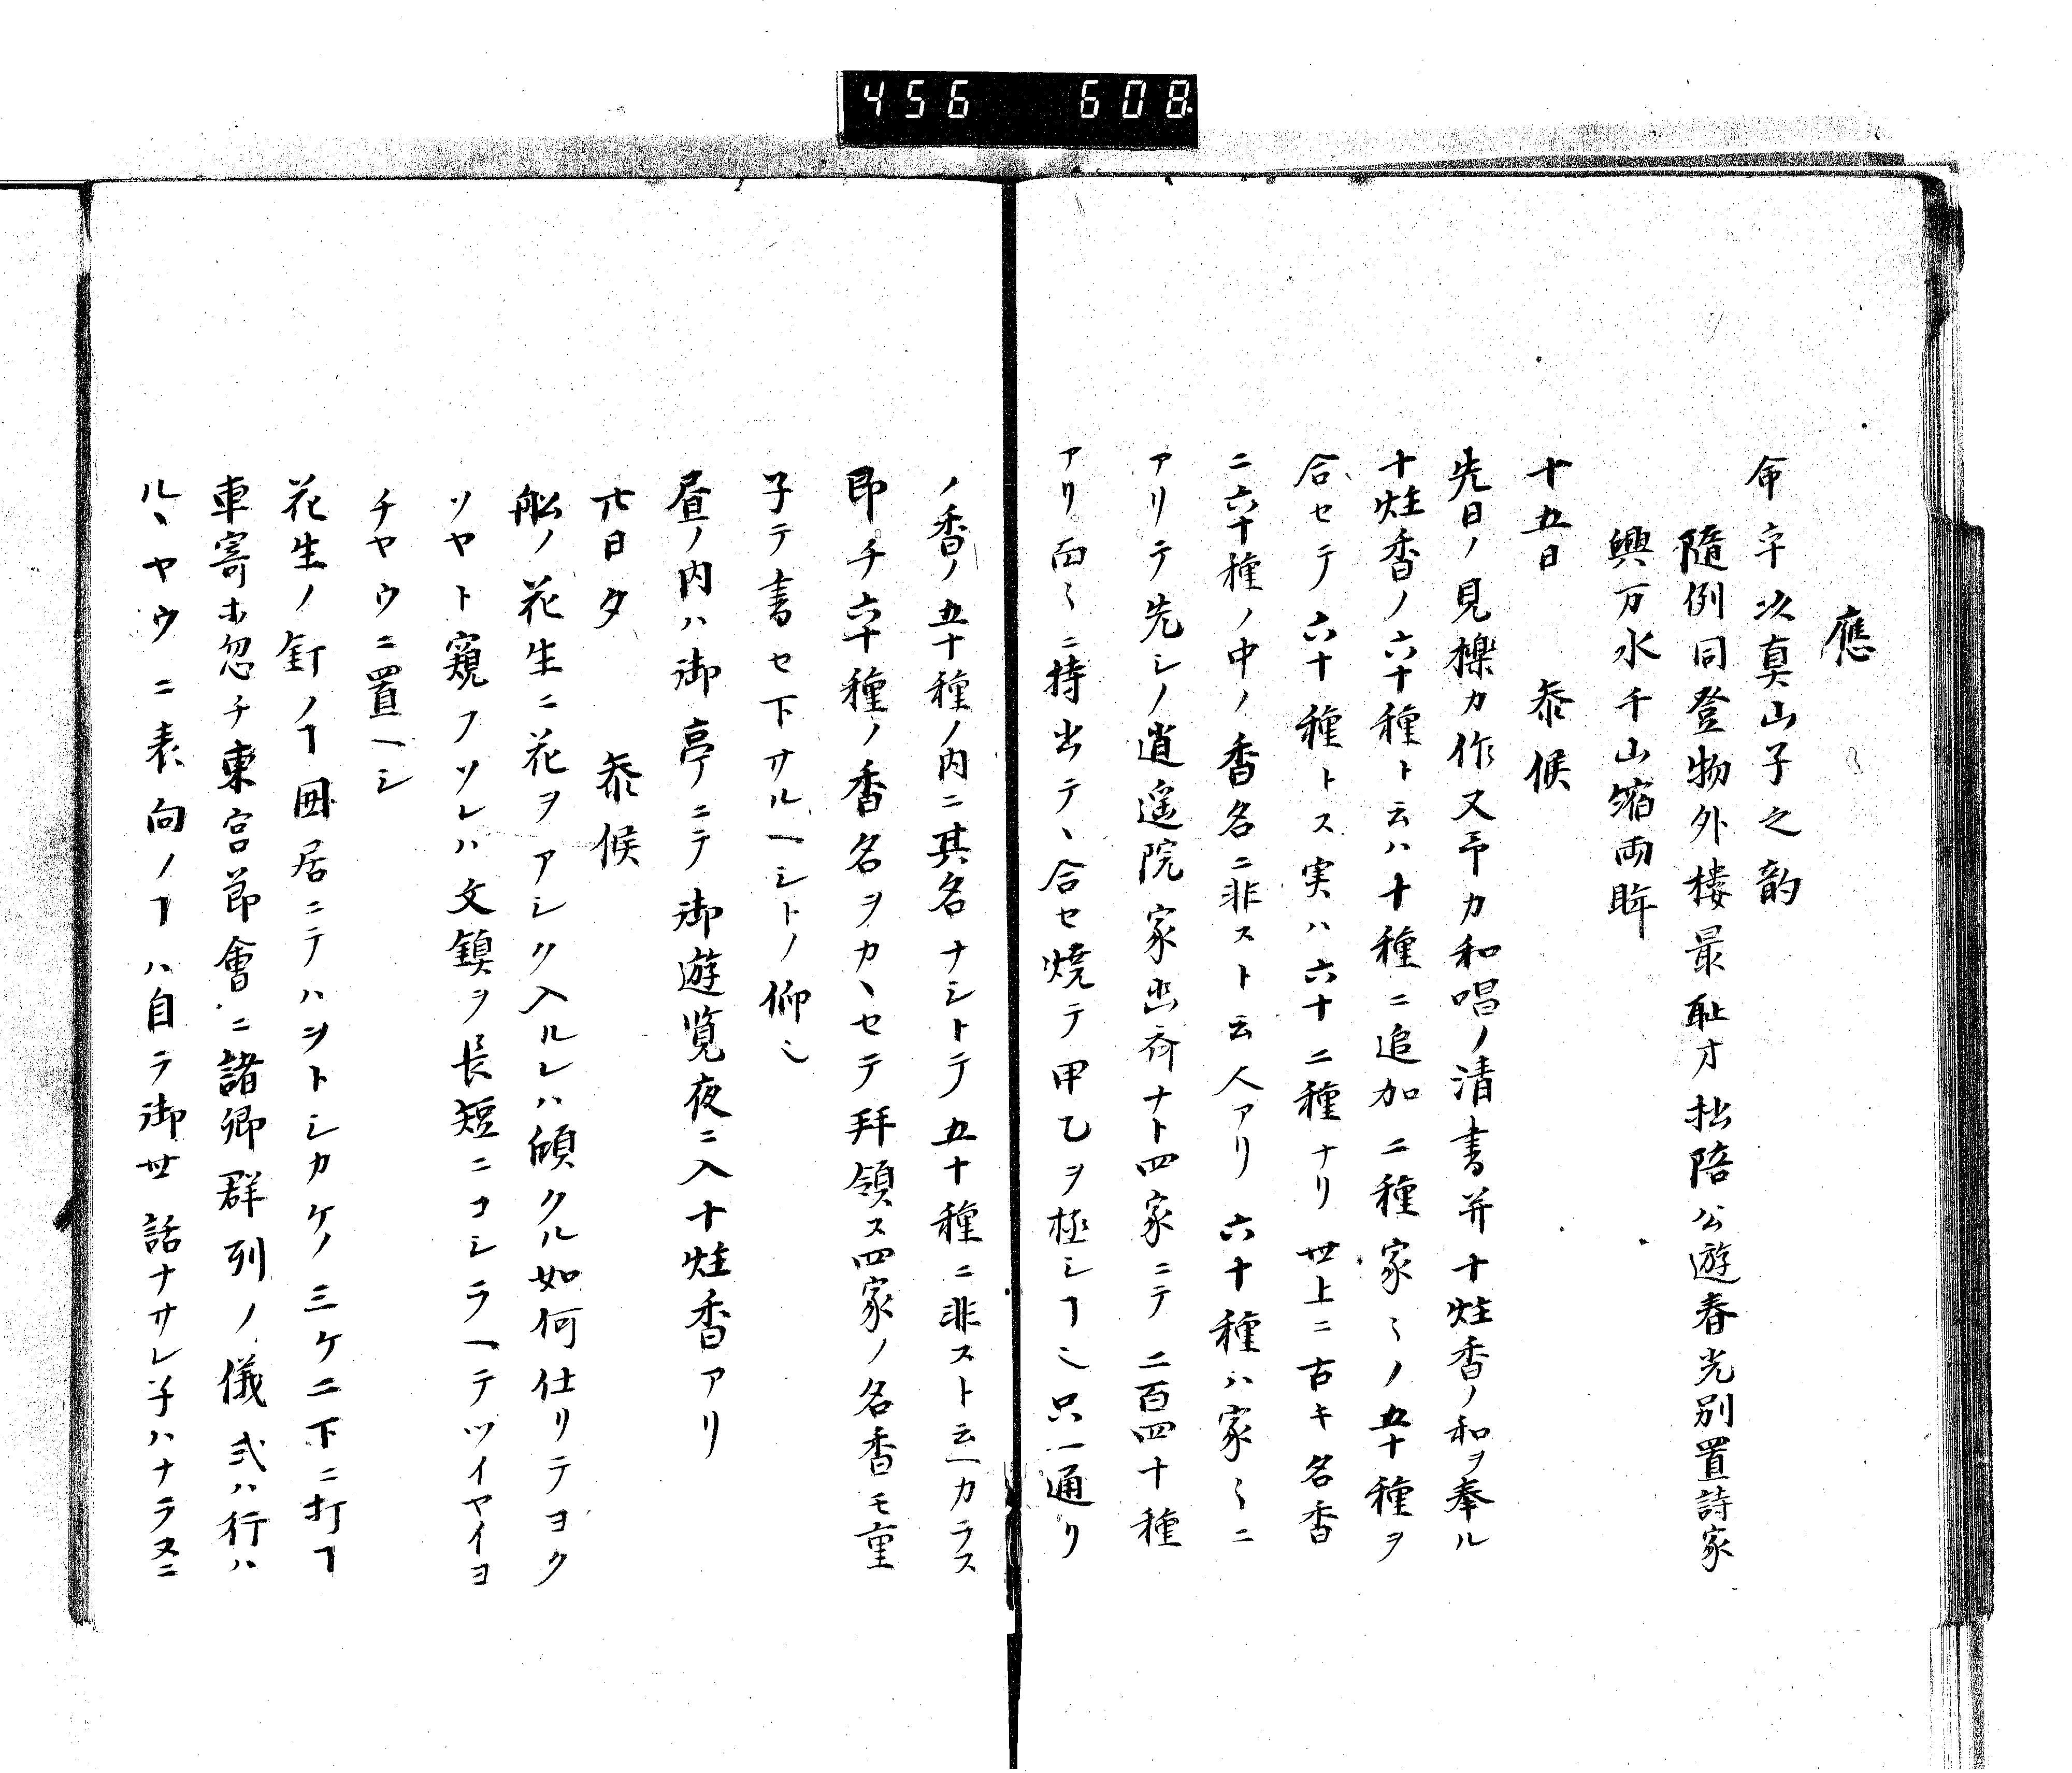 456 608.
應
命卒次真山子之韵
隨例同登物外樓最耻才拙陪公遊春光別置詩家
興万水千山縮両眸
十五日 参候
先日ノ見樂カ作又予カ和唱ノ清書并十炷香ノ和ヲ奉ル
十炷香ノ六十種ト云ハ十種ニ追加二種家〻ノ五十種ヲ
合セテ六十種トス実ハ六十二種ナリ世上ニ古キ名香
ニ六十種ノ中ノ香名ニ非スト云人アリ六十種ハ家〻ニ
アリテ先シノ逍遥院家出斎ナト四家ニテ二百四十種
アリ面〻ニ持出テヽ合セ焼テ甲乙ヲ極シヿ也只一通リ
ノ香ノ五十種ノ内ニ其名ナシトテ五十種ニ非スト云ヘカラス
即チ六十種ノ香名ヲカヽセテ拜領ス四家ノ名香モ重
子テ書セ下サルヘシトノ仰也
昼ノ内ハ御亭ニテ御遊覧夜ニ入十炷香アリ
廿日夕 参候
舩ノ花生ニ花ヲアシク入ルレハ傾クル如何仕リテヨク
ソヤト窺フソレハ文鎮ヲ長短ニコシラヘテツイヤイヨ
チヤウニ置ヘシ
花生ノ釘ノヿ囲居ニテハヲトシカケノ三ケ二下ニ打ヿ
車寄ホ忽チ東宮節會ニ諸卿群列ノ儀式ハ行ハ
ルヽヤウニ表向ノヿハ自ラ御世話ナサレ子ハナラヌニ